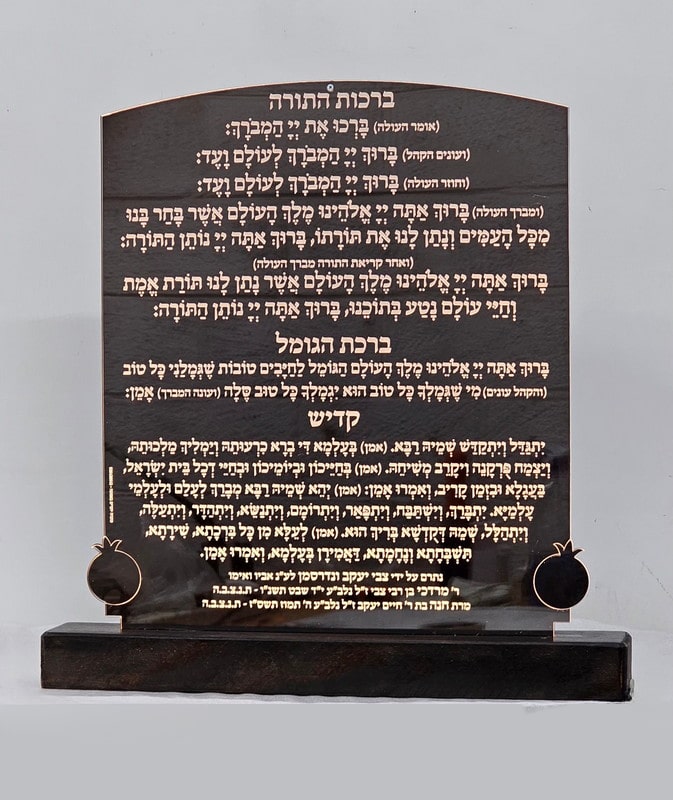 ברכות התורה
(אומר העולה) בָּרְכוּ אֶת יְיָ הַמְבֹרָךְ:
(ועונים הקהל) בָּרוּךְ יְיָ הַמְבֹרָךְ לְעוֹלָם וָעֶד:
(וחוזר העולה) בָּרוּךְ יְיָ הַמְבֹרָךְ לְעוֹלָם וָעֶד:
(ומברך העולה) בָּרוּךְ אַתָּה יְיָ אֱלֹהֵינוּ מֶלֶךְ הָעוֹלָם אֲשֶׁר בָּחַר בָּנוּ
מִכָּל הָעַמִּים וְנָתַן לָנוּ אֶת תּוֹרָתוֹ, בָּרוּךְ אַתָּה יְיָ נוֹתֵן הַתּוֹרָה:
(ואחר קריאת התורה מברך העולה)
בָּרוּךְ אַתָּה יְיָ אֱלֹהֵינוּ מֶלֶךְ הָעוֹלָם אֲשֶׁר נָתַן לָנוּ תּוֹרַת אֱמֶת
וְחַיֵּי עוֹלָם נָטַע בְּתוֹכֵנוּ, בָּרוּךְ אַתָּה יְיָ נוֹתֵן הַתּוֹרָה:
ברכת הגומל
בָּרוּךְ אַתָּה יְיָ אֱלֹהֵינוּ מֶלֶךְ הָעוֹלָם הַגּוֹמֵל לְחַיָּבִים טוֹבוֹת שֶׁגְּמָלַנִי כָּל טוֹב
(והקהל עונים) מִי שֶׁגְּמָלְךָ כָּל טוֹב הוּא יִגְמָלְךָ כָּל טוּב סֶלָה (ועונה המברך) אָמֵן:
קדיש
יִתְגַּדַּל וְיִתְקַדַּשׁ שְׁמֵיהּ רַבָּא. (אמן) בְּעָלְמָא דִּי בְרָא כִרְעוּתֵהּ וְיַמְלִיךְ מַלְכוּתֵהּ,
וְיַצְמַח פֻּרְקָנֵהּ וִיקָרֵב מְשִׁיחֵהּ. (אמן) בְּחַיֵּיכוֹן וּבְיוֹמֵיכוֹן וּבְחַיֵּי דְכָל בֵּית יִשְׂרָאֵל,
בַּעֲגָלָא וּבִזְמַן קָרִיב, וְאִמְרוּ אָמֵן: (אמן) יְהֵא שְׁמֵיהּ רַבָּא מְבָרַךְ לְעָלַם וּלְעָלְמֵי
עָלְמַיָּא. יִתְבָּרֵךְ, וְיִשְׁתַּבַּח, וְיִתְפָּאֵר, וְיִתְרוֹמֵם, וְיִתְנַשֵּׂא, וְיִתְהַדָּר, וְיִתְעַלֶּה,
וְיִתְהַלָּל, שְׁמֵהּ דְּקֻדְשָׁא בְּרִיךְ הוּא. (אמן) לְעֵלָּא מִן כָּל בִּרְכָתָא, שִׁירָתָא,
תֻּשְׁבְּחָתָא וְנֶחֱמָתָא, דַּאֲמִירָן בְּעָלְמָא, וְאִמְרוּ אָמֵן.
נתרם על ידי צבי יעקב ונדרסמן לע"נ אביו ואימו
ר' מרדכי בן רבי צבי ז"ל נלב"ע י"ד שבט תשנ"ו - ת.נ.צ.ב.ה
מרת חנה בת ר' חיים יעקב ז"ל נלב"ע ה' תמוז תשס"ו - ת.נ.צ.ב.ה